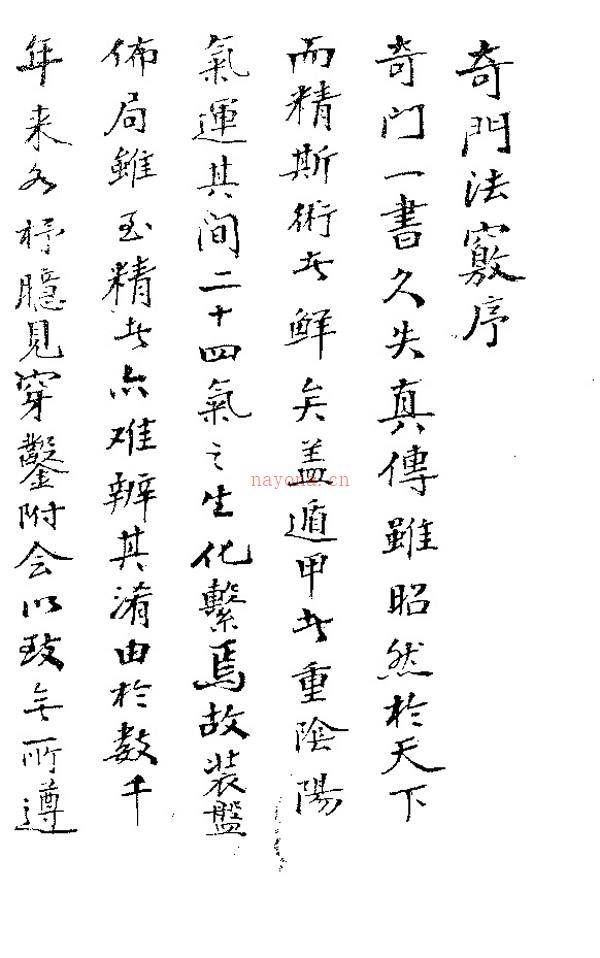 奇門法竅序
奇门一書久失真傳雖昭然於天下
而精斯術者鮮矣盖遁甲者重陰陽
氣運其间二十四氣之生化繫焉故装盤
佈局雖至精者亦难辨其淆由於数千
年来各抒臆見穿鑿附会以致无所遵
nayona.cn